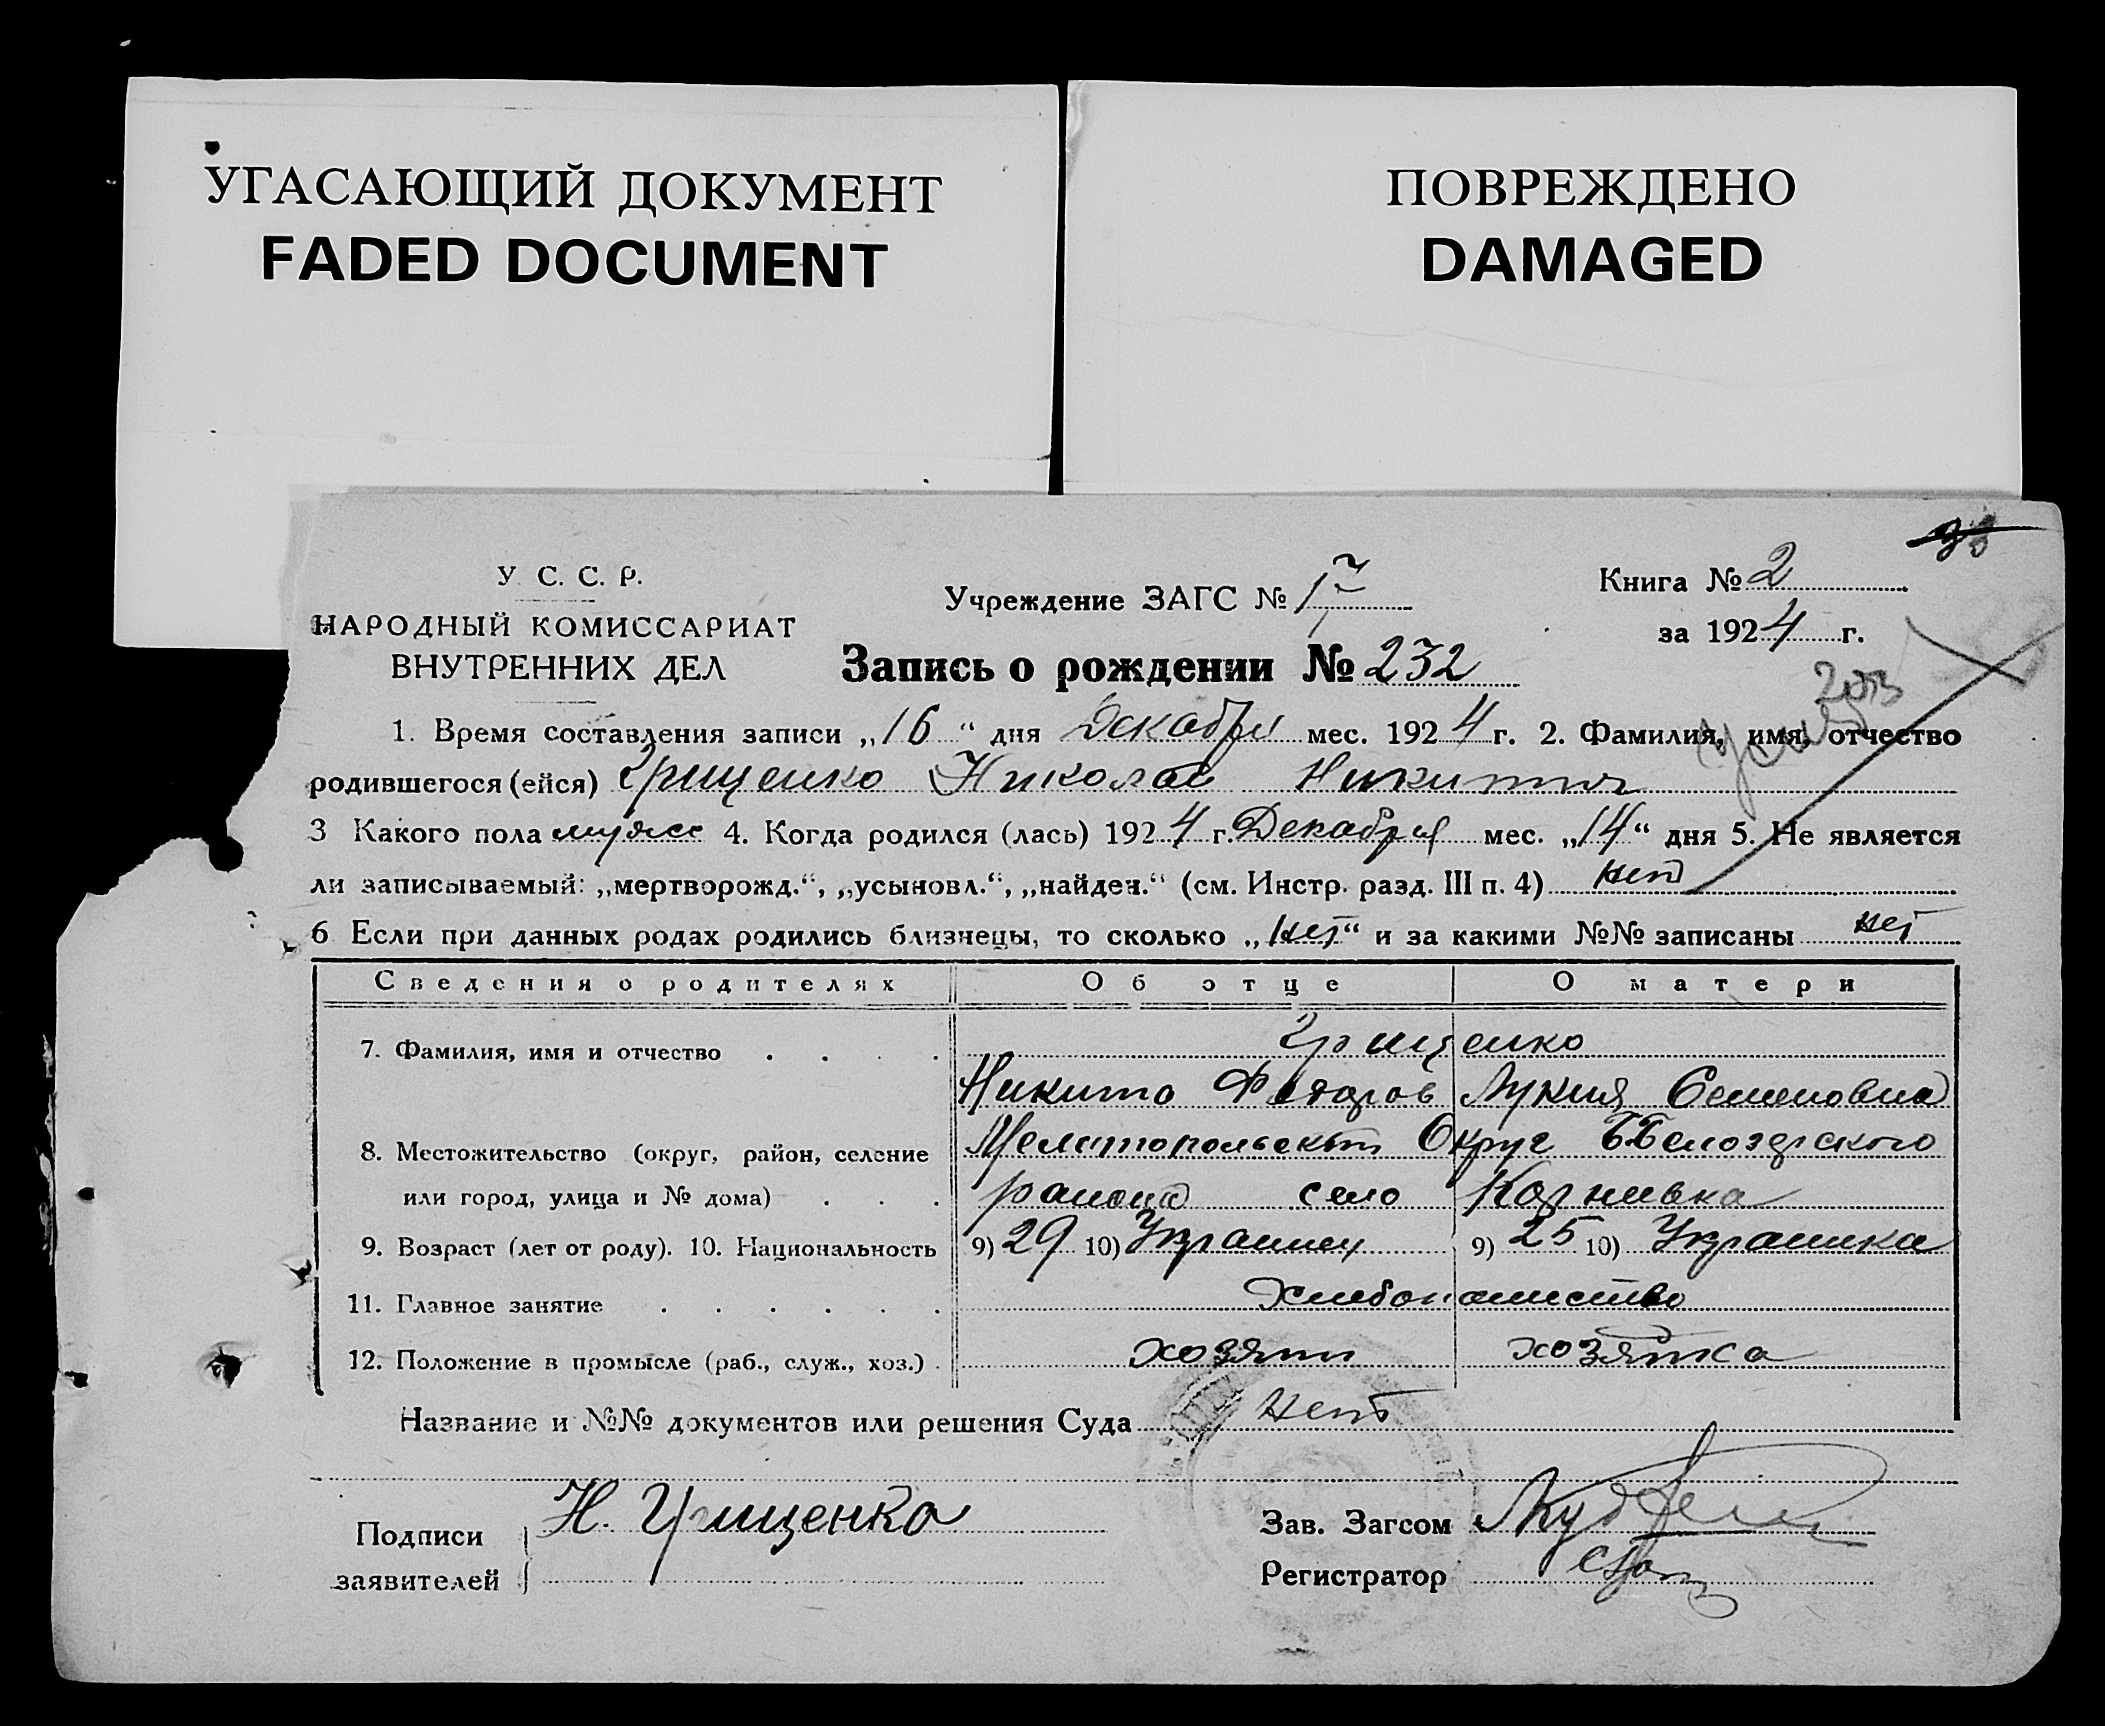 УГАСАЮЩИЙ ДОКУМЕНТ
FADED DOCUMENT
ПОВРЕЖДЕНО
DAMAGED
У. С. С. Р.
НАРОДНЫЙ КОМИССАРИАТ
ВНУТРЕННИХ ДЕЛ
Учреждение ЗАГС №
Книга № 2
за 1924 г.
Запись о рождении № 232
1. Время составления записи „16“ дня Декабря мес. 1924 г. 2. Фамилия, имя, отчество
родившегося (ейся) Грищенко Николай Никитич
3 Какого пола мужск 4. Когда родился (лась) 1924 г. Декабря мес. „14“ дня 5. Не является
ли записываемый: „мертворожд.“, „усыновл.“, „найден.“ (см. Инстр. разд. III п. 4) нет
6 Если при данных родах родились близнецы, то сколько „нет“ и за какими №№ записаны нет
Сведения о родителях Об отце О матери
7. Фамилия, имя и отчество Грищенко
Никита Федоров Лукия Семеновна
8. Местожительство (округ, район, селение Мелитопольский Округ Б Белозерского
или город, улица и № дома) района село
9. Возраст (лет от роду). 10. Национальность 9) 29 10) Украинец 9) 25 10) Украинка
11. Главное занятие
12. Положение в промысле (раб., служ., хоз.) хозяин хозяйка
Название и №№ документов или решения Суда нет
Подписи Н. Грищенко
заявителей
Зав. Загсом
Регистратор